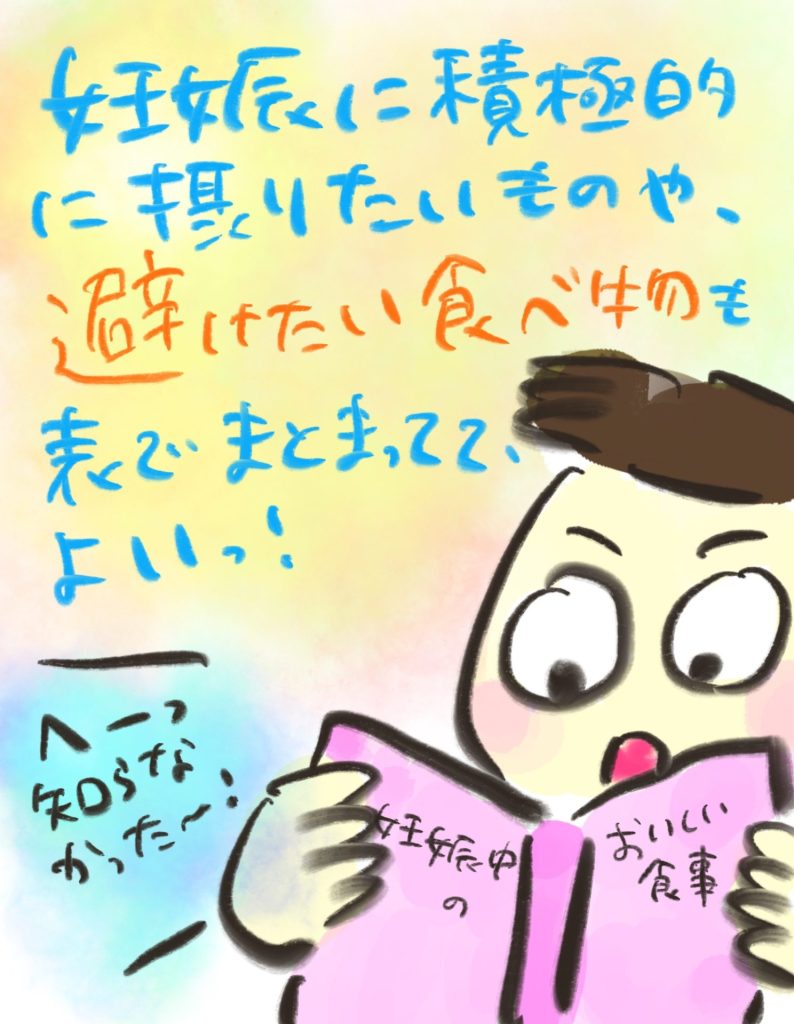 妊娠に積極的
に摂りたいものや、
避けたい食べ物も
表でまとまってて、
よいっ!
へーっ
知らな
かった〜!
妊娠中
の
おいしい
食事